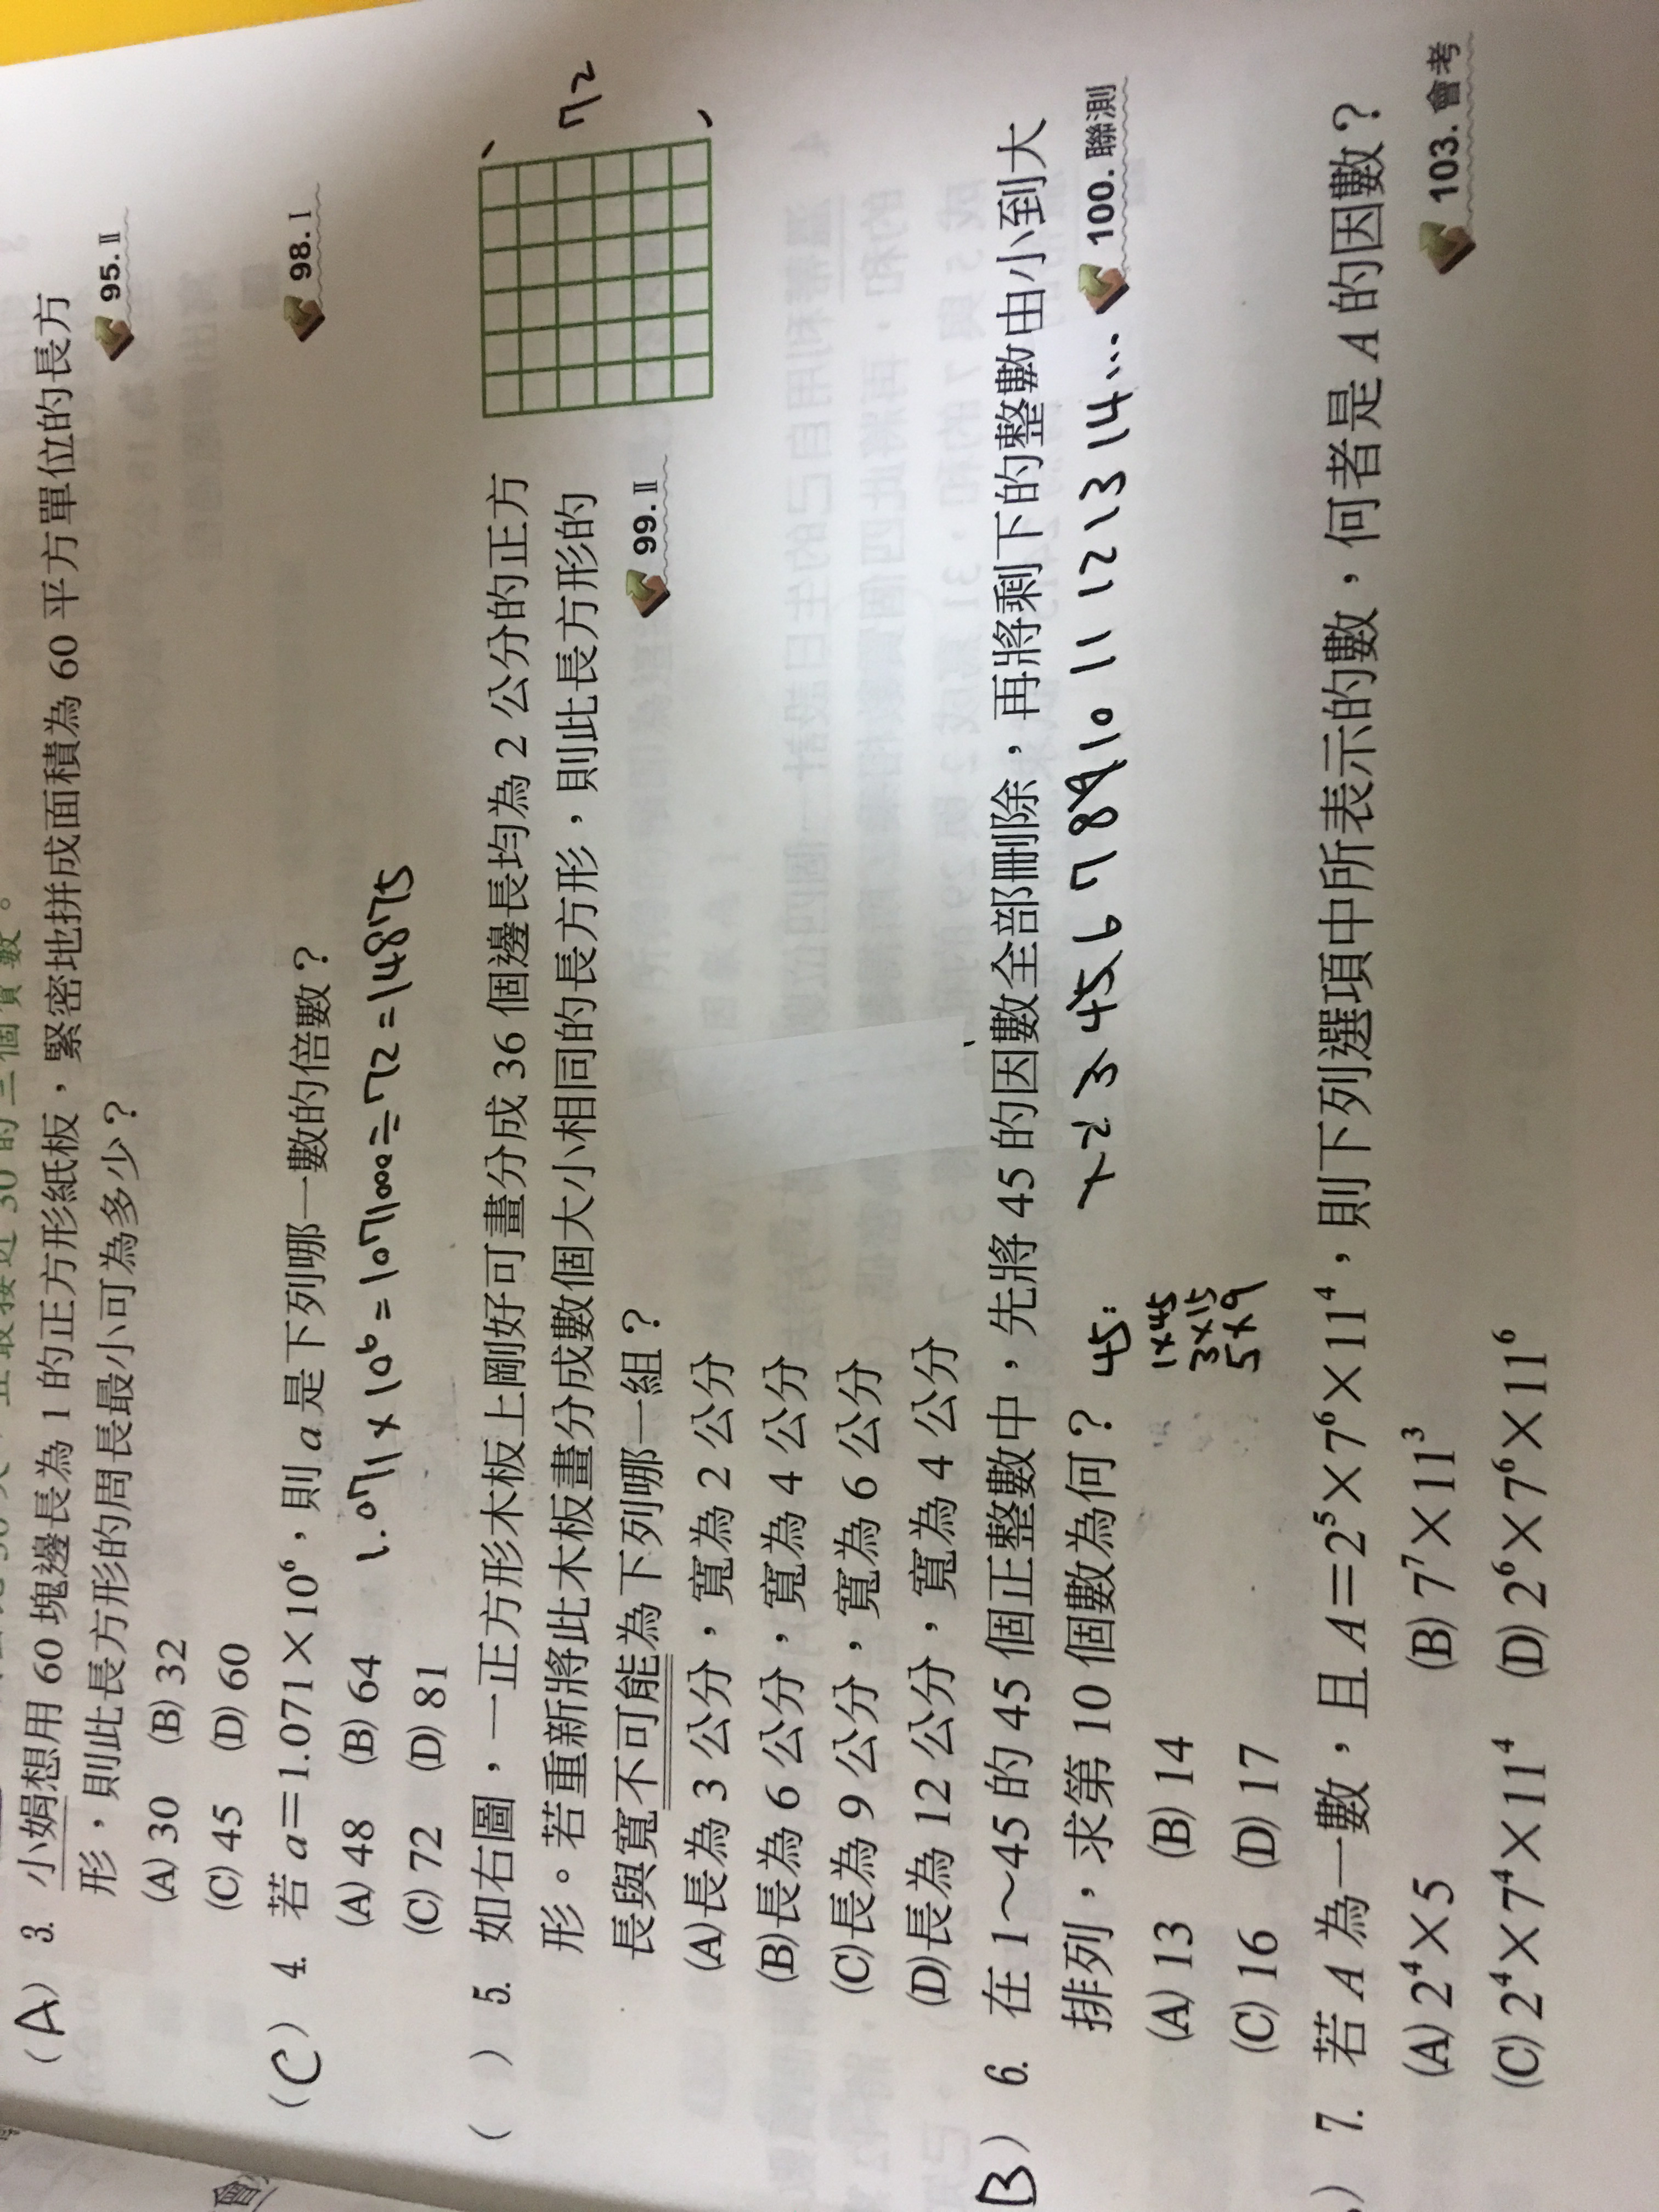 (A) 3. 小娟想用 60 塊邊長為 1 的正方形紙板，緊密地拼成面積為 60 平方單位的長方
形，則此長方形的周長最小可為多少？ 95.Ⅱ
(A) 30 (B) 32
(C) 45 (D) 60
(C) 4. 若 a＝1.071×10⁶，則 a 是下列哪一數的倍數？ 98.Ⅰ
(A) 48 (B) 64
1.071×10⁶=1071000÷72=14875
(C) 72 (D) 81
( ) 5. 如右圖，一正方形木板上剛好可畫分成 36 個邊長均為 2 公分的正方
形。若重新將此木板畫分成數個大小相同的長方形，則此長方形的
長與寬不可能為下列哪一組？ 99.Ⅱ
72
(A)長為 3 公分，寬為 2 公分
(B)長為 6 公分，寬為 4 公分
(C)長為 9 公分，寬為 6 公分
(D)長為 12 公分，寬為 4 公分
(B) 6. 在 1～45 的 45 個正整數中，先將 45 的因數全部刪除，再將剩下的整數由小到大
排列，求第 10 個數為何？ 100.聯測
1 2 3 4 5 6 7 8 9 10 11 12 13 14...
45:
1×45
3×15
5×9
(A) 13 (B) 14
(C) 16 (D) 17
) 7. 若 A 為一數，且 A＝2⁵×7⁶×11⁴，則下列選項中所表示的數，何者是 A 的因數？
103.會考
(A) 2⁴×5 (B) 7⁷×11³
(C) 2⁴×7⁴×11⁴ (D) 2⁶×7⁶×11⁶